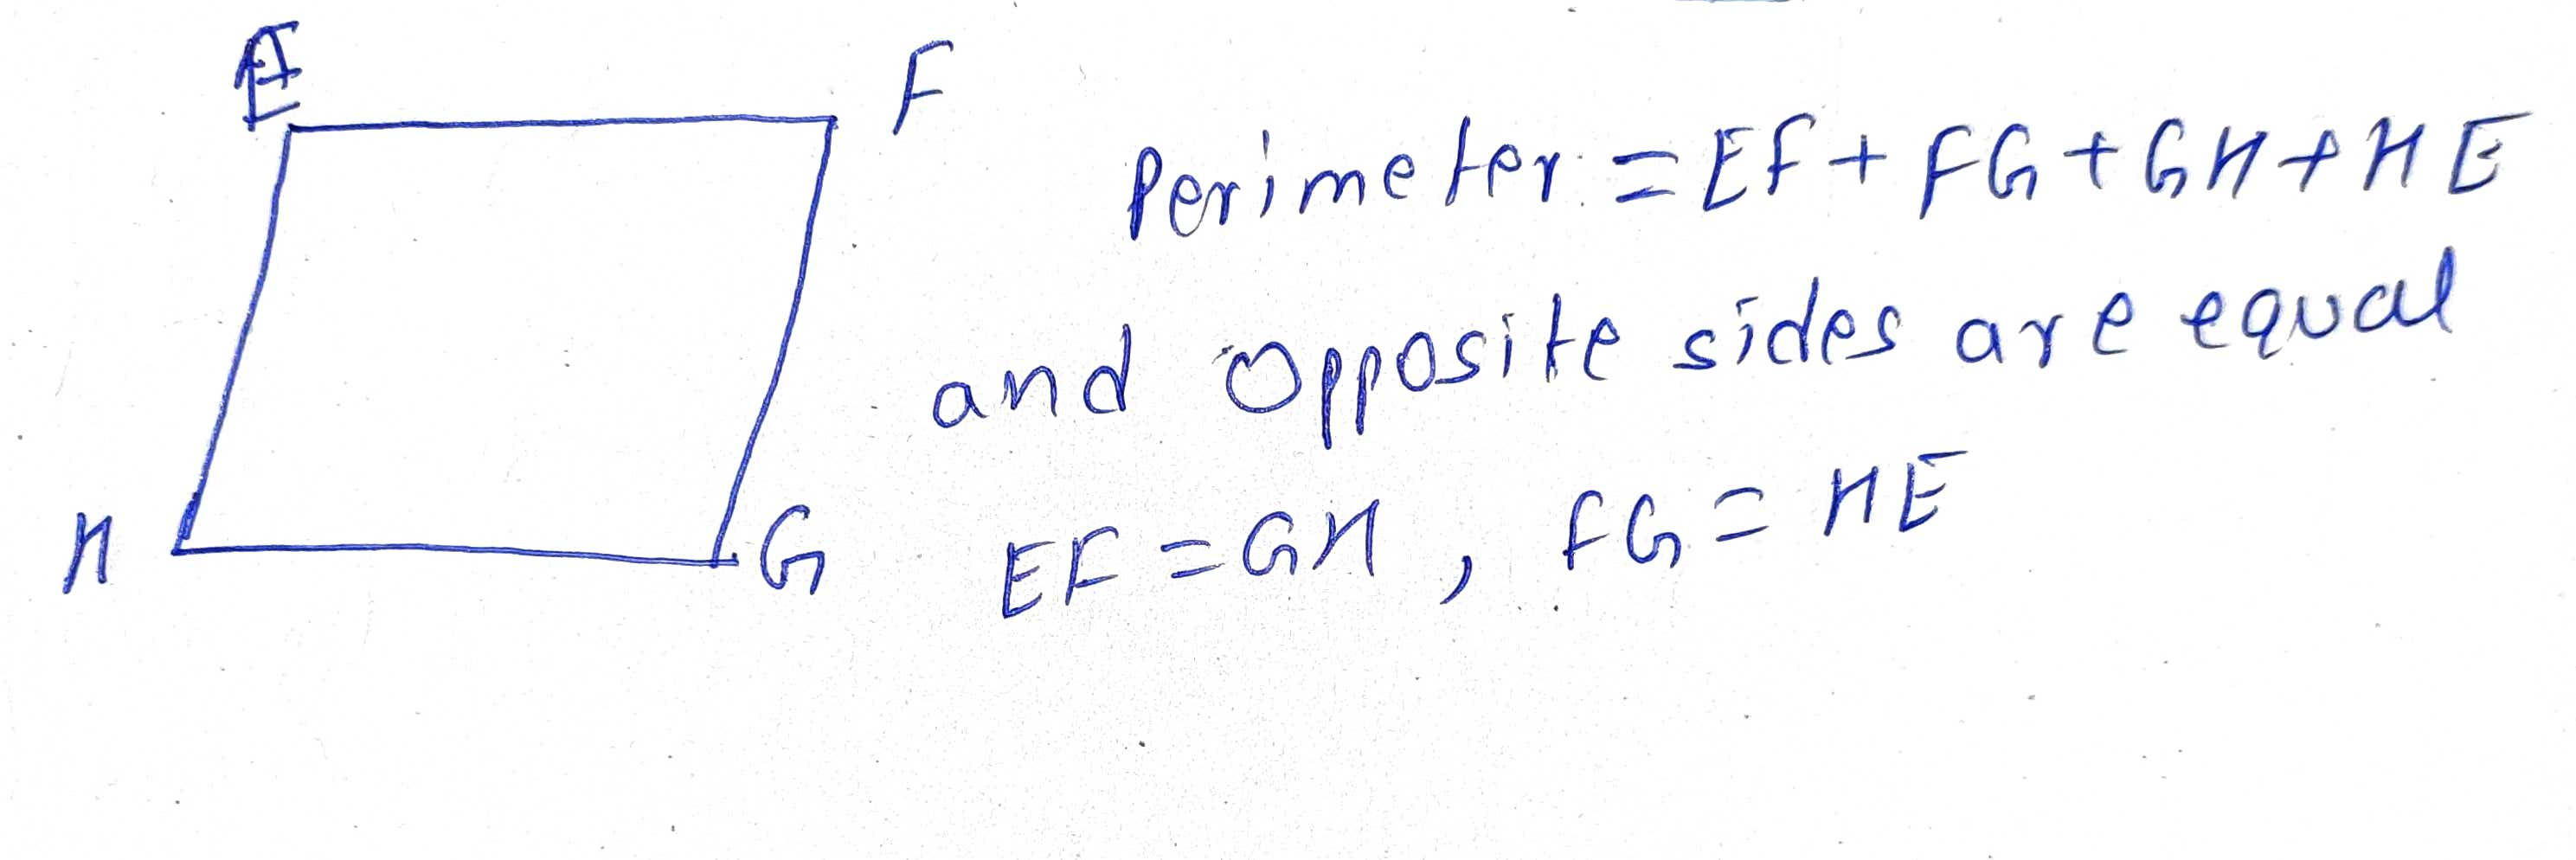 E F
Perimeter = EF + FG + GH + HE
and opposite sides are equal
H G EF = GH , FG = HE